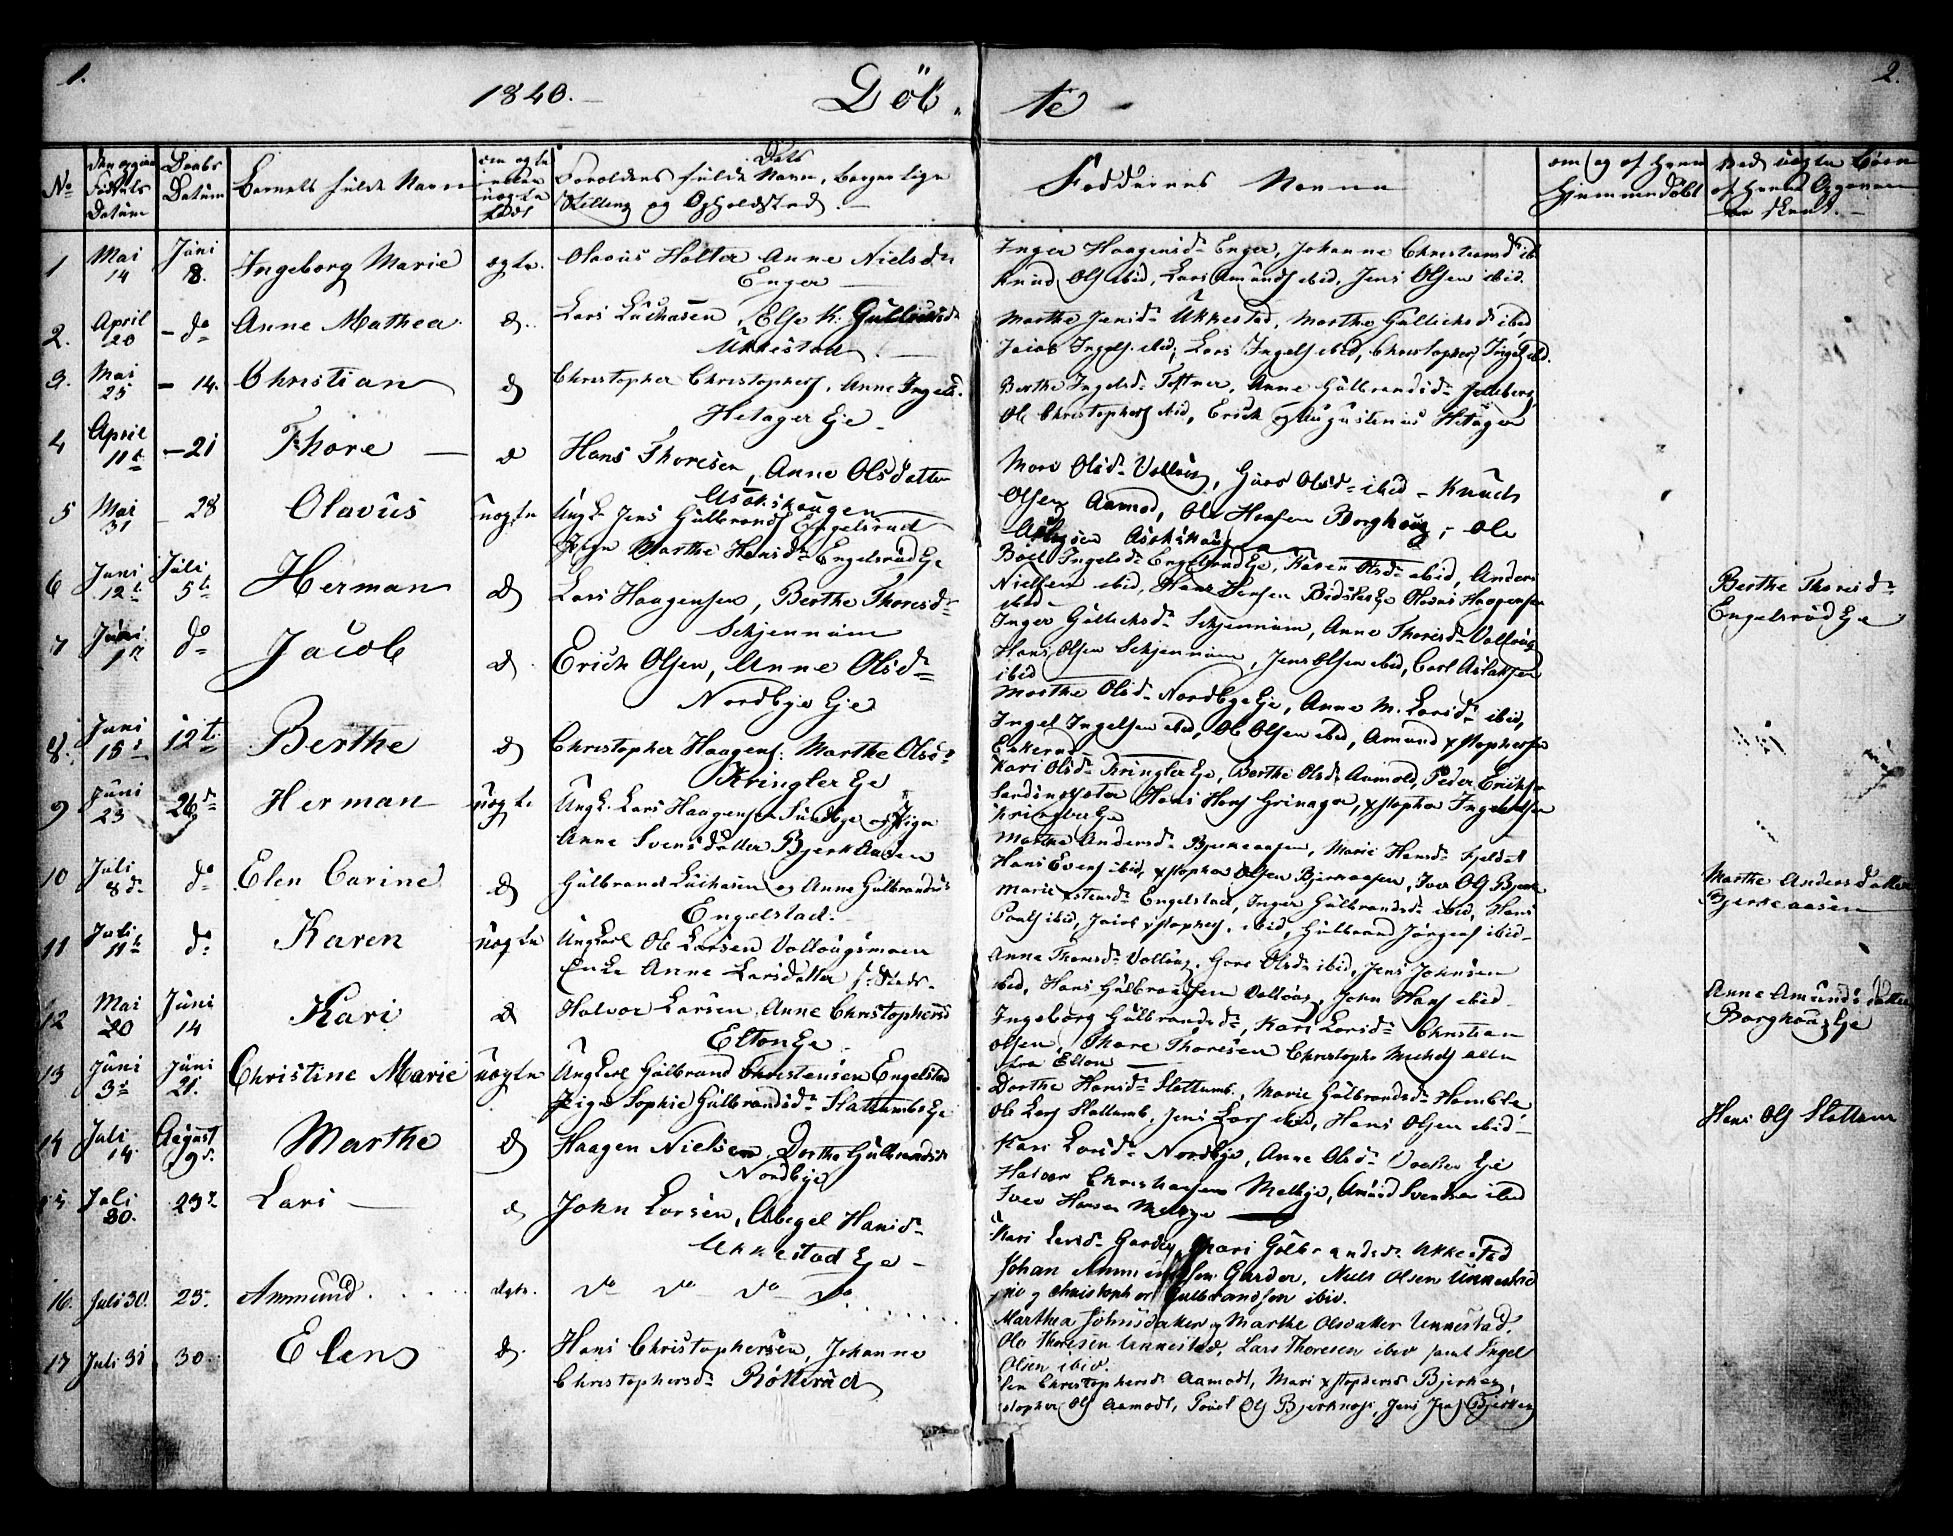 1.
2.
1840. Döb- te
No
Fødsels Datum
Daabs Datum
Barnets fulde Navn
Forældrens fulde Navn, borgerlige
Stilling og Opholdsted.
Faddernes Navne
om og af hvem
hjemmendöbt
Ved uægte Börn
af hvem Opgaven
er skeet.
1 Mai 14 Juni 8. Ingeborg Marie ægte. Olavus Holter Anne Nielsd.
Enger
Inger Haagensd. Enger, Johanne Christiansd. ib
Knud Ols ibid, Lars Amunds ibid, Jens Olsen ibid.
2. April 20 - do Anne Mathea d. Lars Luchasen, Else K. Gullichsd.
Ukkestad
Marthe Jensd. Ukkestad, Marthe Gullichsd ibid
Jacob Ingels. ibid, Lars Ingels ibid, Christophers Ingels ibid.
3. Mai 25 - 14. Christian d Christopher Christophers, Anne Ingelsd.
Hetager Eje
Berthe Ingelsd. Toftner, Anne Gulbrandsd. Julleberg,
Ole Christophers ibid, Erich og Augustenius Hetager
4 April 11t - 21 Thore d Hans Thoresen, Anne Olsdatter
Asakshaugen
Mari Olsd. Vollaug, Guro Olsd. ibid - Knud
Olsen Aamod, Ole Hansen Borghaug, Ole
5 Mai 31 - 28 Olavus uægte Ungk. Jens Gulbrands Engelsrud
Pige Marthe Hansd. Engelsrud Eje
Boel Ingelsd. Engelsrud Eje, Karen Olsd. ibid, Anders
Nielsen ibid, Hans Jensen Eje Olaus Haagensen
ibid
Berthe Thoresd.
Engelsrud Eje
6 Juni 12t Juli 5t Herman d Lars Haagensen, Berthe Thoresd.
Schjennum
Inger Gullichsd. Schjennum, Anne Thoresd. Vollaug
Hans Olsen Schjennum, Jens Olsen ibid, Carl Aslaksen
ibid
7 Juni 1 do Jacob d. Erich Olsen, Anne Olsd.
Nordbye Eje
Marthe Olsd. Nordbye Eje, Anne M. Larsd. ibid,
Ingel Ingelsen ibid, Ole Olsen ibid, Amund Xstophersen
8. Juni 15 12t. Berthe d Christopher Haagens. Marthe Olsd.
Kringler Eje
Kari Olsd. Kringler Eje, Berthe Olsd. Aamold, Peder Eriks.
Hans Hans Grinager, Xstopher Ingebretsen
Kringler Eje
9 Juni 23 26de Herman uægte Ungk. Lars Haagensen Sundbye og Pige
Anne Svensdatter Bjerkaasen
Marthe Andersd. Bjerkeaasen, Marie Hansd. Fjeldet
Hans Evens ibid, Xstopher Olsen Bjerkeaasen, Iver Ols Bjerke
Marthe Andersdatter
Bjerkeaasen
10 Juli 8de do Elen Carine d Gulbrand Luchasen og Anne Gulbrandsd.
Engelstad.
Marie Xstensd. Engelstad, Inger Gulbrandsd. ibid, Hans
Pauls ibid, Jacob Xstophers. ibid, Gulbrand Jörgens ibid
11 Juli 11t do Karen uægte Ungkarl Ole Larsen Vollaugsmoen
Enke Anne Larsdatter
Anne Thoresd. Vollaug, Goro Olsd. ibid, Jens Johnsen
ibid, Hans Gulbrandsen Vollaug, John Hans ibid
Anne Amundsdatter
Borghaug Eje
12 Mai 20 Juni 14 Kari d Halvor Larsen, Anne Christophersd
Elton Eje
Ingeborg Gulbrandsd., Kari Larsd. Christian
Olsen, Thore Thoresen Christopher Michels alle
fra Elton
13 Juni 3d Juni 21. Christine Marie uægte Ungkarl Gulbrand Christensen Engelstad
Pige Sophie Gulbrandsd. Slattumbs Eje
Dorthe Hansd. Slattumb, Marie Gulbrandsd.
Ole Lars Slattumb, Jens Lars ibid, Hans Olsen ibid
Hans Ols Slattum
14 Juli 14. August 9d. Marthe d Haagen Nielsen, Dorthe Gulbrandsd.
Nordbye
Kari Larsd. Nordbye, Anne Olsd. Eje
Halvor Melbye, Amund Svendsen ibid
Iver Hansen Melbye
15 Juli 30. 23d Lars d John Larsen, Abegel Hansd.
Ukkestad Eje
Kari Larsd. Garder, Mari Gulbrandsd. Ukkestad
Johan Garder, Niels Olsen Unnestad
og Christopher Gulbrandsen ibid.
16. Juli 30. 23. Ammund. ægte. do do do do
Marthea Johnsdatter og Marthe Olsdatter Unnestad,
Ole Thoresen Unnestad, Lars Thoresen ibid samt Ingel
Olsen ibid.
17 Juli 31 30. Elens d. Hans Christophersen, Johanne
Christophersd. Rötterud
Christophersd. Aamodt, Mari Xstophersd. Bjerke,
Ols Aamodt, Ols, Jens Bjerke